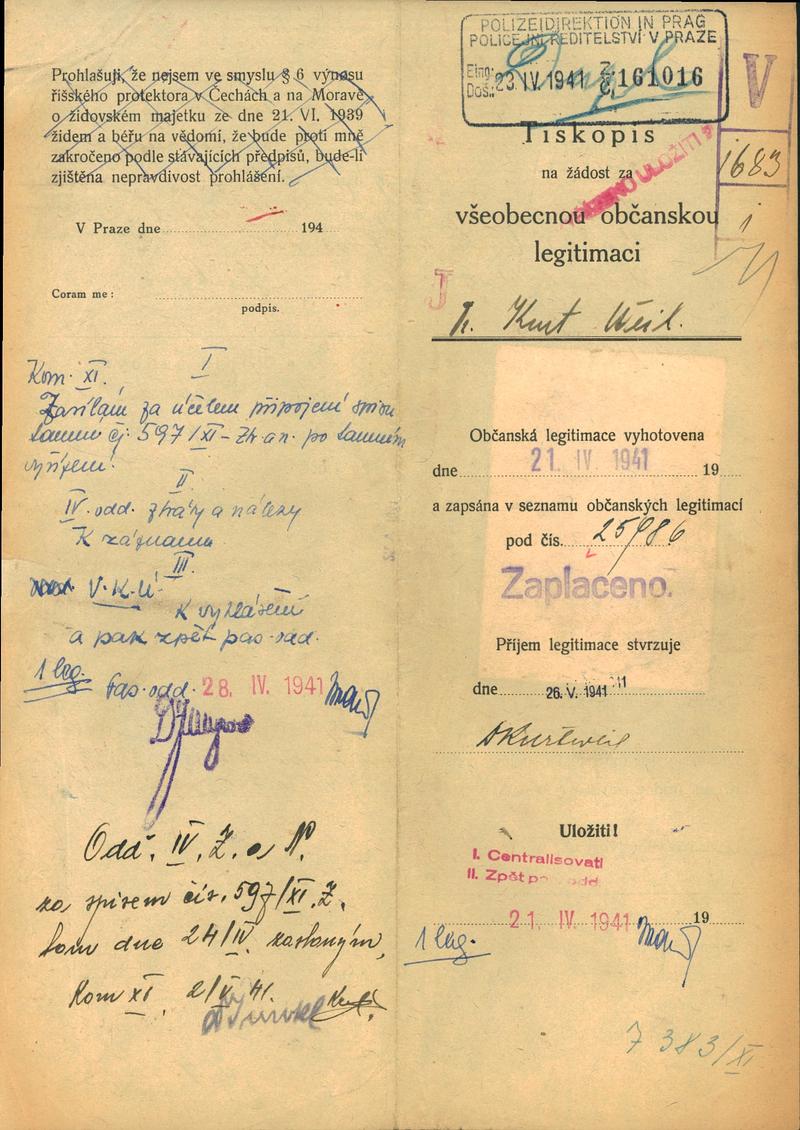 Prohlašuji, že nejsem ve smyslu § 6 výnosu
říšského protektora v Čechách a na Moravě
o židovském majetku ze dne 21. VI. 1939
židem a béřu na vědomí, že bude proti mně
zakročeno podle stávajících předpisů, bude-li
zjištěna nepravdivost prohlášení.
V Praze dne 194
Coram me :
podpis.
I
Kom. XI.
Zasílám za účelem připojení spisu
čj. 597/XI - Zt. an. po
vyřízení.
II.
IV. odd. ztráty a nálezy
K záznamu
III.
V. K. U.
K vyhlášení
a pak zpět pas. odd.
1 leg.
Pas. odd. 28. IV. 1941
Odd. IV. Z. a N.
za spisem čís. 597/XI. Z.
tam dne 24/IV. zaslaným,
Kom XI. 2/V 41.
POLIZEIDIREKTION IN PRAG
POLICEJNÍ ŘEDITELSTVÍ V PRAZE
Eing.:
Doš.: 23 IV. 1941 Z. č. 161016
V
1683
1
Tiskopis
na žádost za
ULOŽITI?
všeobecnou občanskou
legitimaci
J
Kurt Weil.
Občanská legitimace vyhotovena
dne 21. IV 1941 19
a zapsána v seznamu občanských legitimací
pod čís. 25986
Zaplaceno.
Příjem legitimace stvrzuje
dne 26. V. 1941
Uložiti!
I. Centralisovati
II. Zpět odd
21. IV. 1941 19
1 leg.
7383/XI